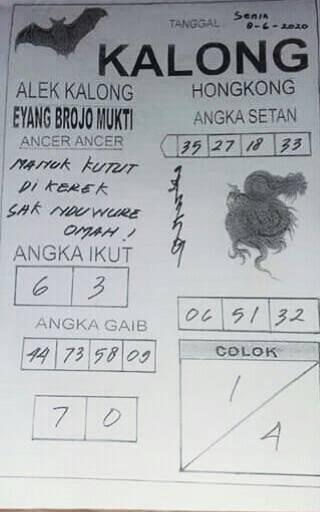 TANGGAL Senin
8-6-2020
KALONG
ALEK KALONG
HONGKONG
EYANG BROJO MUKTI
ANGKA SETAN
ANCER ANCER
35 27 18 33
MANUK KUTUT
DI KEREK
SAK NDUWURE
OMAH!
ANGKA IKUT
6 3
06 51 32
ANGKA GAIB
44 73 58 09
COLOK
1
4
7 0